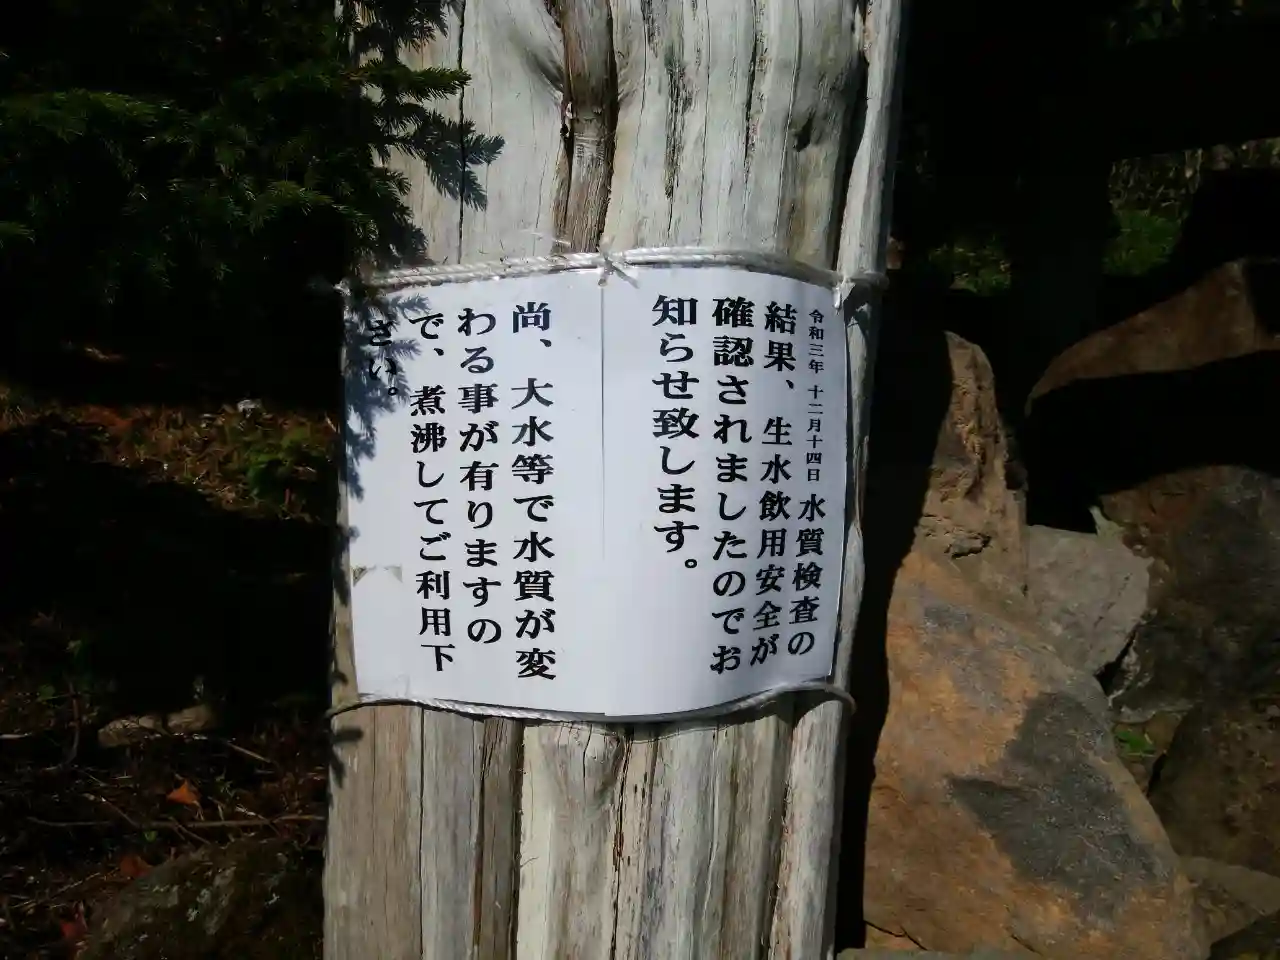 令和三年 十二月十四日 水質検査の
結果、生水飲用安全が
確認されましたのでお
知らせ致します。
尚、大水等で水質が変
わる事が有りますの
で、煮沸してご利用下
さい。